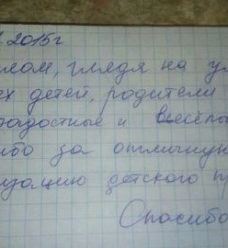 2015г
лом, глядя на у
х детей, родители
радостные и весёлы
ибо за отличную
изацию детского п
Спасибо